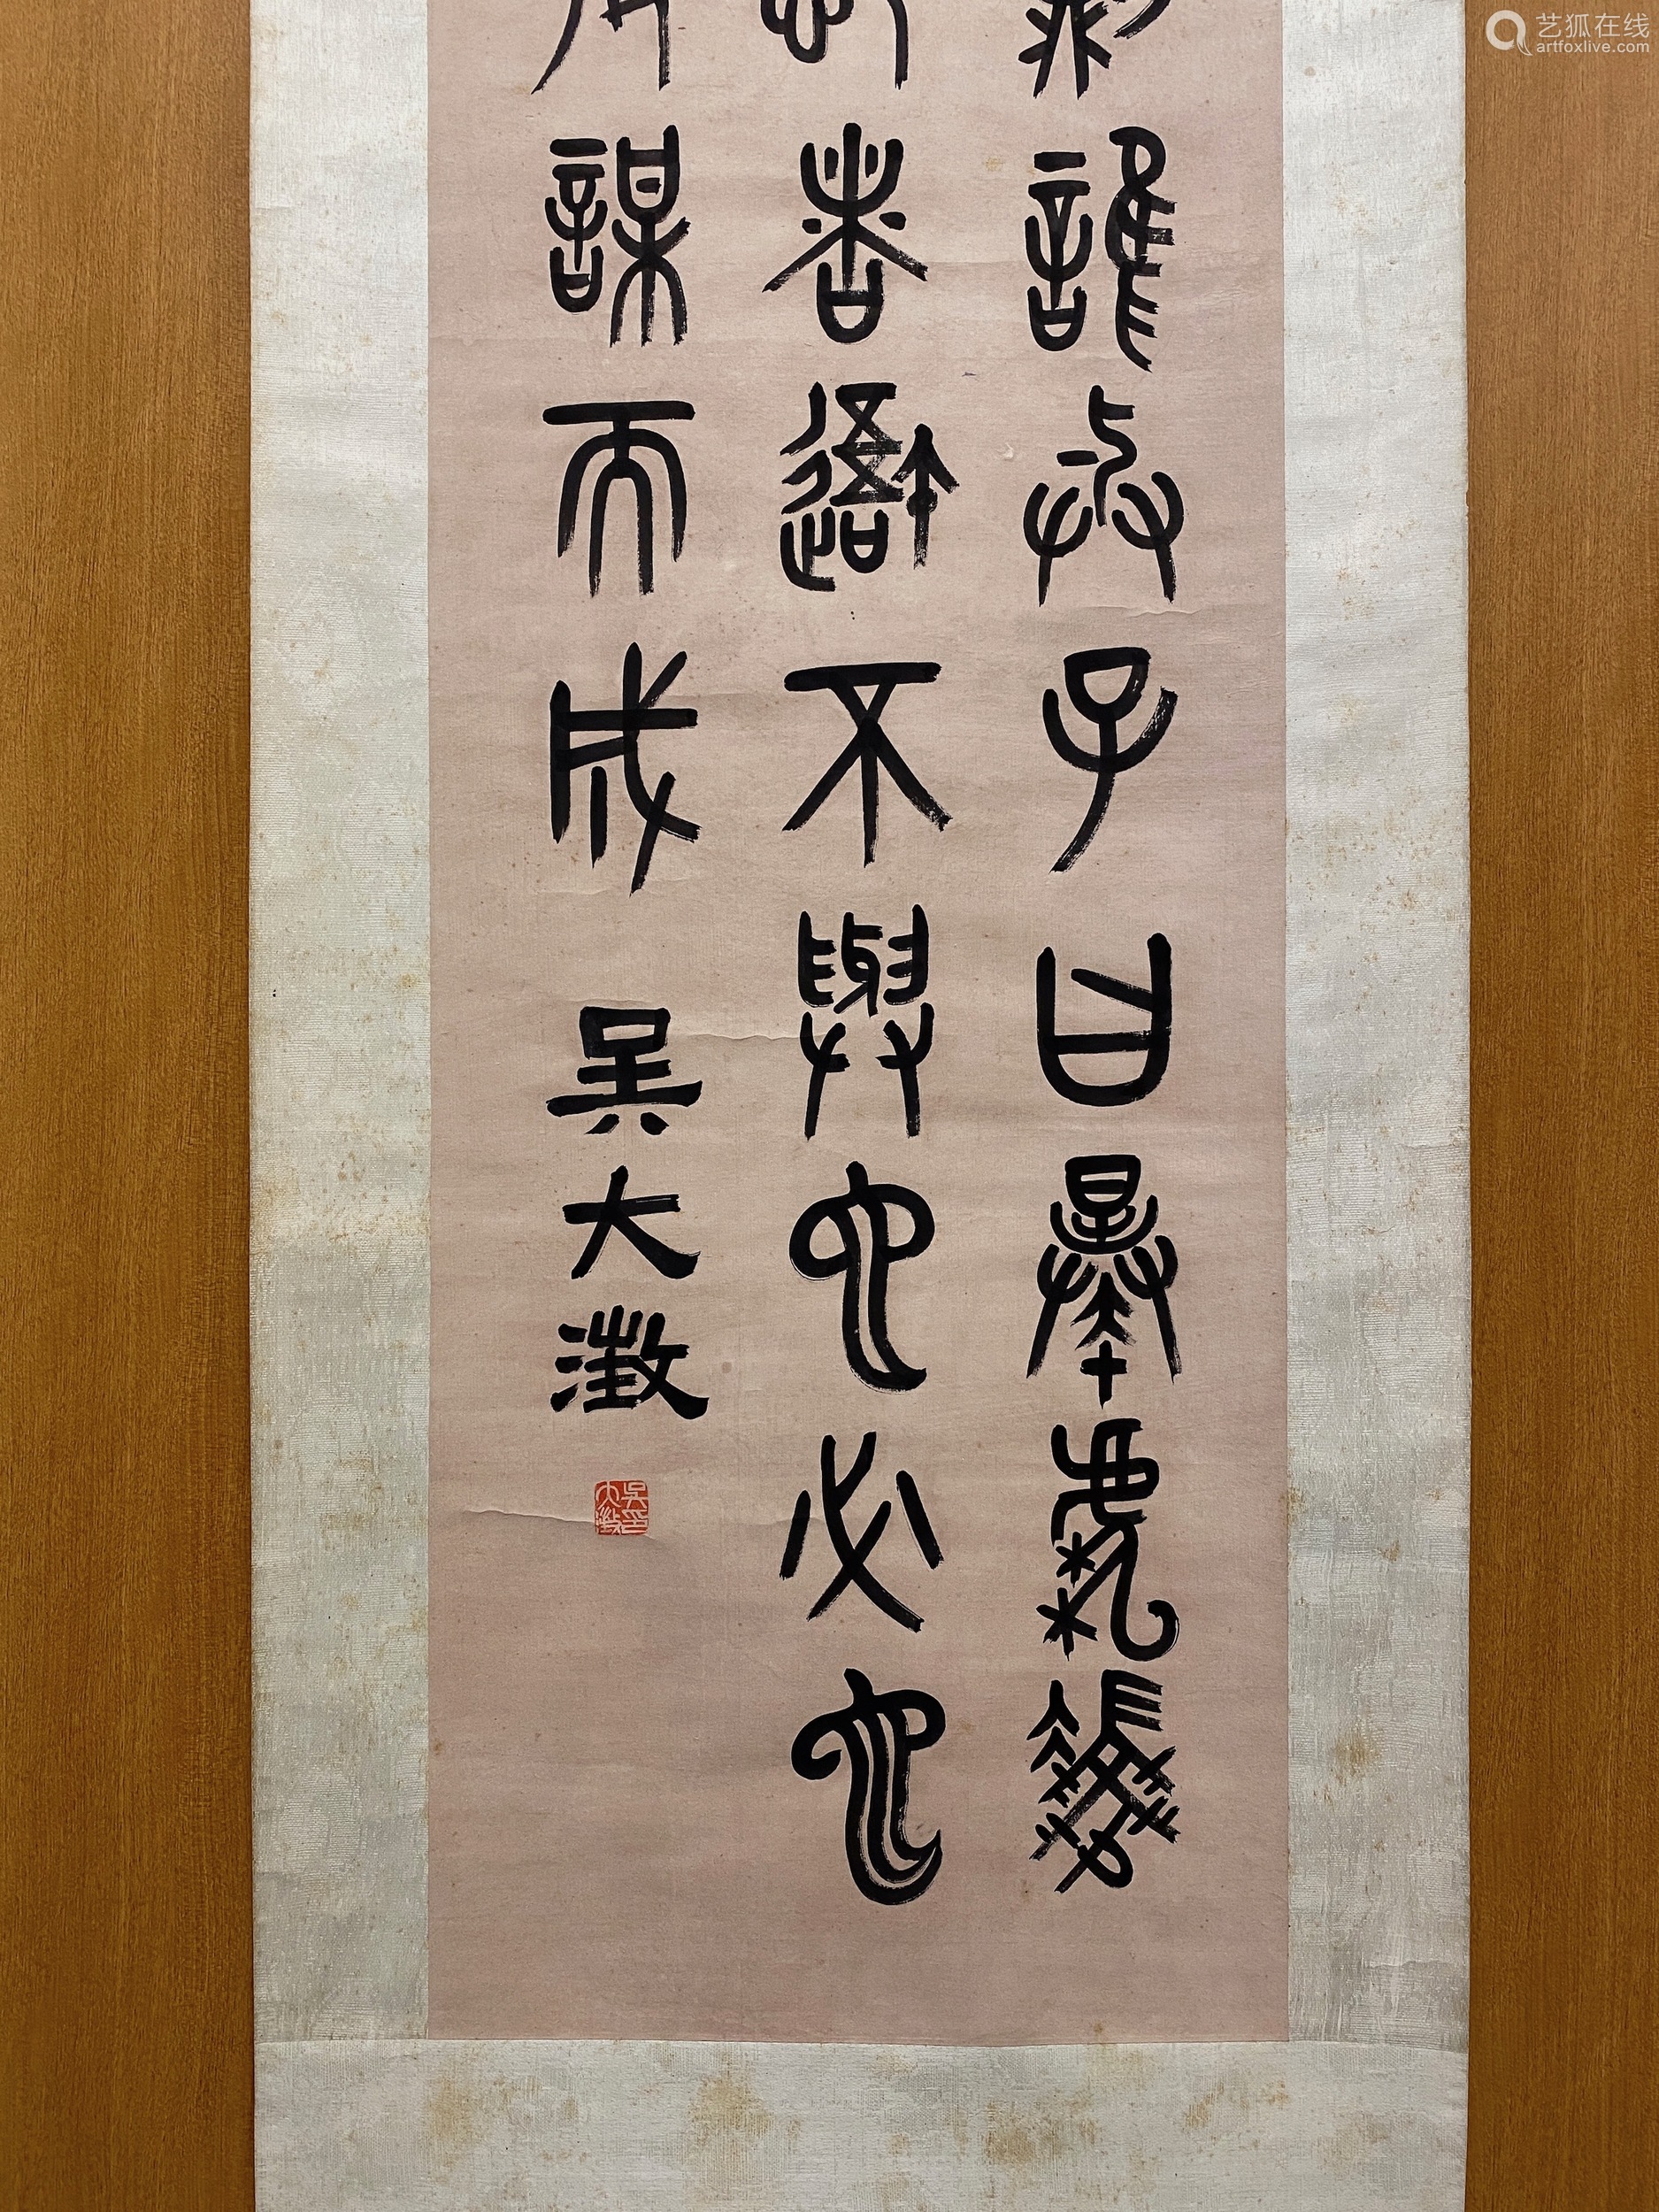 誰與子曰暴虎馮
者吾不與也必也
謀而成
吳大澂
吳印大澂
艺狐在线
artfoxlive.com